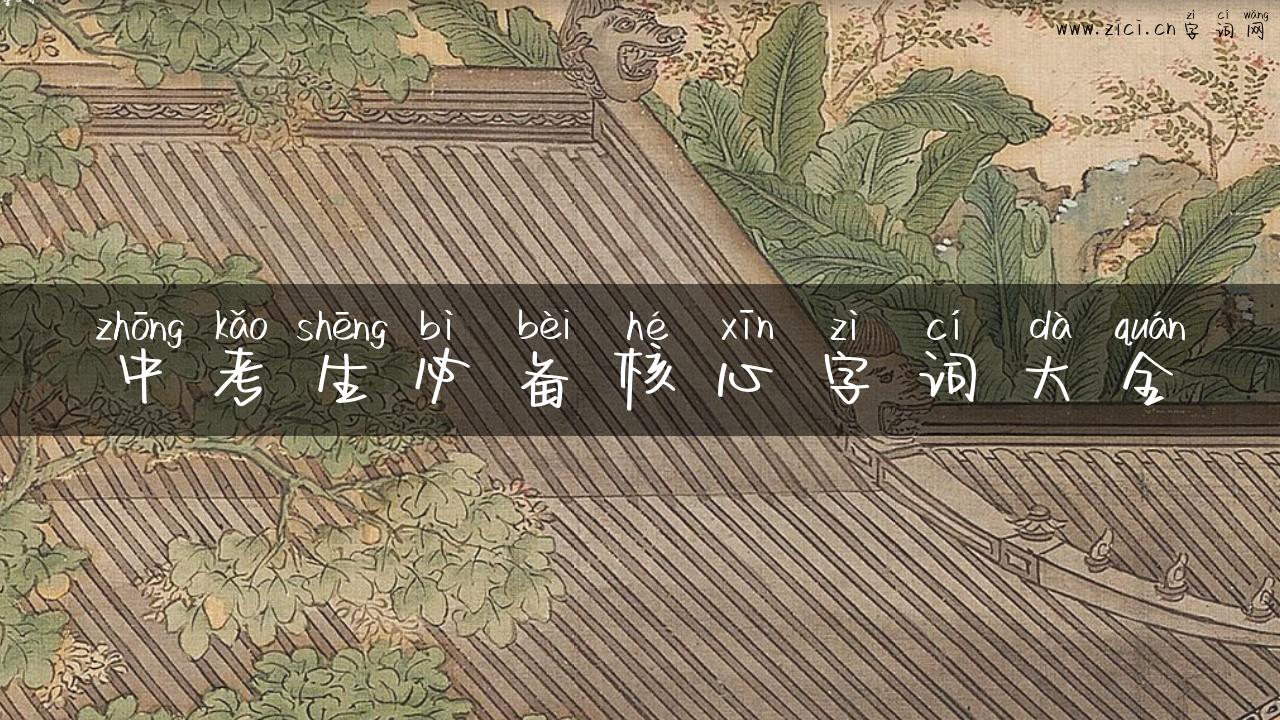 zì cí wǎng
www.zici.cn 字词网
zhōng kǎo shēng bì bèi hé xīn zì cí dà quán
中考生必备核心字词大全